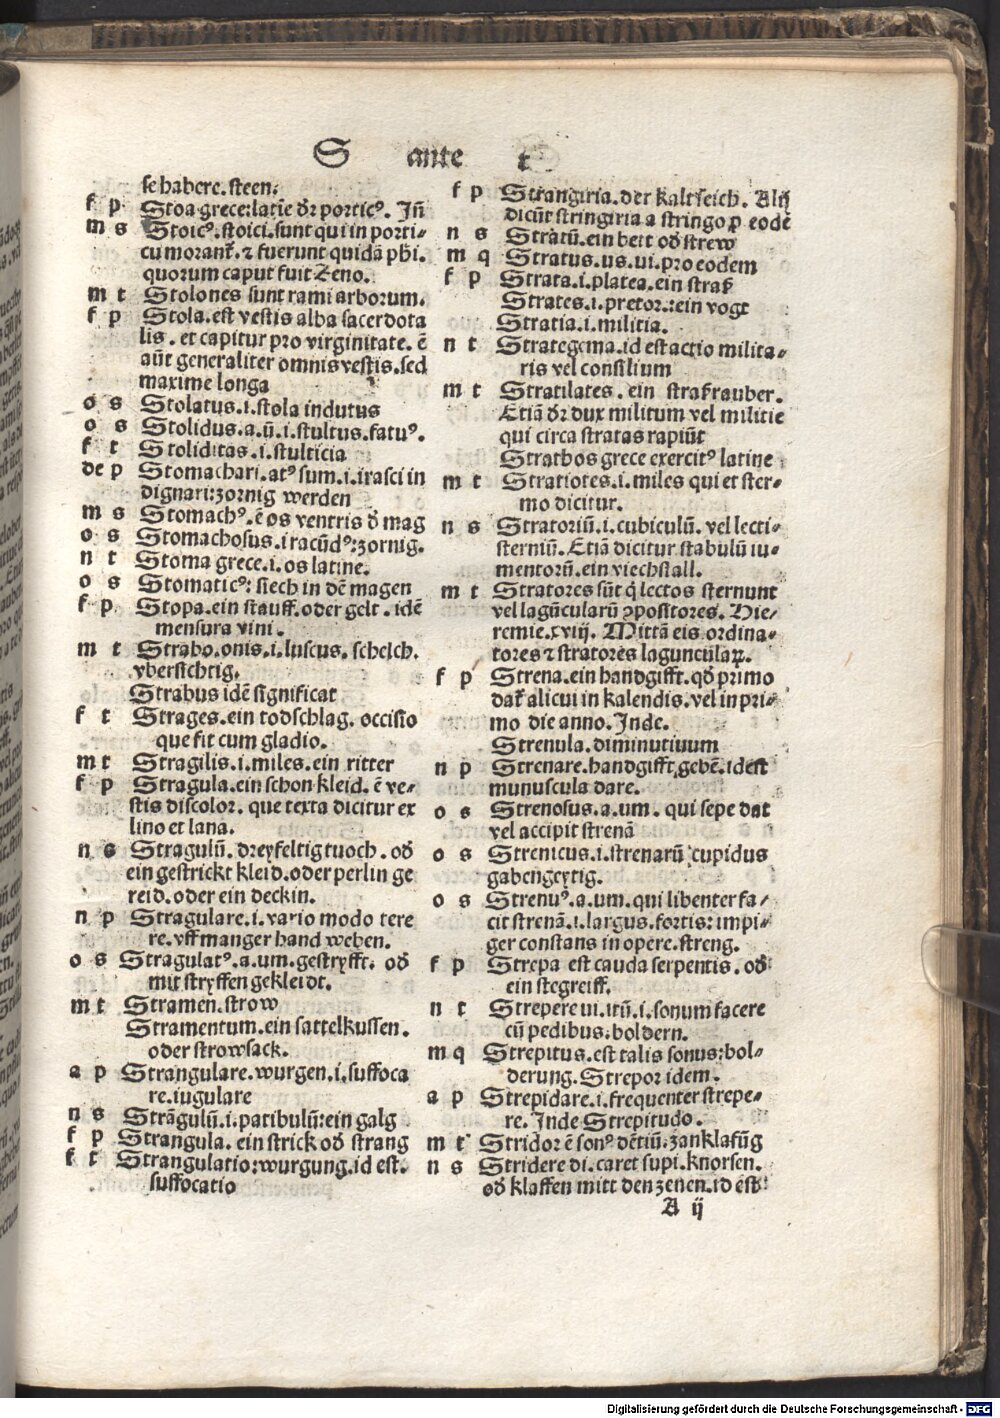 S ante t
se habere. steen.
f p Stoa grece: latīe dr̄ porticꝰ. Jñ
m s Stoicꝰ. stoici. sunt qui in porti⸗
cu morant̄. ⁊ fuerunt quidā ph̄i.
quorum caput fuit Zeno.
m t Stolones sunt rami arborum.
f p Stola. est vestis alba sacerdota
lis. et capitur pro virginitate. ē
aūt generaliter omnis vestis. sed
maxime longa
o s Stolatus. i. stola indutus
o s Stolidus. a. ū. i. stultus. fatuꝰ.
f t Stoliditas. i. stulticia
de p Stomachari. atꝰ sum. i. irasci in
dignari: zornig werden
m s Stomachꝰ. ē os ventris d̄ mag
o s Stomachosus. iracūdꝰ: zornig.
n t Stoma grece. i. os latine.
o s Stomaticꝰ: siech in dē magen
f p Stopa. ein stauff. oder gelt. idē
mensura vini.
m t Strabo. onis. i. luscus. schelch.
vbersichtig.
Strabus idē significat
f t Strages. ein todschlag. occisio
que fit cum gladio.
m t Stragilis. i. miles. ein ritter
f p Stragula. ein schon kleid. ē ve⸗
stis discolor. que texta dicitur ex
lino et lana.
n s Stragulū. dreyfeltig tuoch. od̄
ein gestrickt kleid. oder perlin ge
reid. oder ein deckin.
n p Stragulare. i. vario modo tere
re. vff manger hand weben.
o s Stragulatꝰ. a. um. gestryfft. od̄
mit stryffen gekleidt.
m t Stramen. strow
Stramentum. ein sattelkussen.
oder strowsack.
a p Strangulare. wurgen. i. suffoca
re. iugulare
n s Strāgulū. i. patibulū: ein galg
f p Strangula. ein strick od̄ strang
f t Strangulatio: wurgung. id est.
suffocatio
f p Strangiria. der kaltseich. Alij
dicūt stringiria a stringo ꝓ eodē
n s Stratū. ein bett od̄ strew
m q Stratus. us. ui. pro eodem
f p Strata. i. platea. ein straß
Strates. i. pretor.: ein vogt
Stratia. i. militia.
n t Strategema. id est actio milita⸗
ris vel consilium
m t Stratilates. ein straßrauber.
Etiā dr̄ dux militum vel militie
qui circa stratas rapiūt
Strathos grece exercitꝰ latine
m t Stratiotes. i. miles qui et ster⸗
mo dicitur.
n s Stratoriū. i. cubiculū. vel lecti⸗
sterniū. Etiā dicitur stabulū iu⸗
mentorū. ein viechstall.
m t Stratores sūt q̄ lectos sternunt
vel lagūcularū ꝯpositores. Hie⸗
remie. xviij. Mittā eis ordina⸗
tores ⁊ stratores lagunculaꝝ.
f p Strena. ein handgifft. qd̄ primo
dat̄ alicui in kalendis. vel in pri⸗
mo die anno. Inde.
Strenula. diminutiuum
n p Strenare. handgifft gebē. id est
munuscula dare.
o s Strenosus. a. um. qui sepe dat
vel accipit strenā
o s Strenicus. i. strenarū cupidus
gabengeytig.
o s Strenuꝰ. a. um. qui libenter fa⸗
cit strenā. i. largus. fortis: impi⸗
ger constans in opere. streng.
f p Strepa est cauda serpentis. od̄
ein stegreiff.
n t Strepere ui. itū. i. sonum facere
cū pedibus: boldern.
m q Strepitus. est talis sonus: bol⸗
derung. Strepor idem.
a p Strepidare. i. frequenter strepe⸗
re. Inde Strepitudo.
m t Stridor ē sonꝰ dētiū. zanklafūg
n s Stridere di. caret supi. knorsen.
od̄ klaffen mitt den zenen. id est
A ij
Digitalisierung gefördert durch die Deutsche Forschungsgemeinschaft - DFG